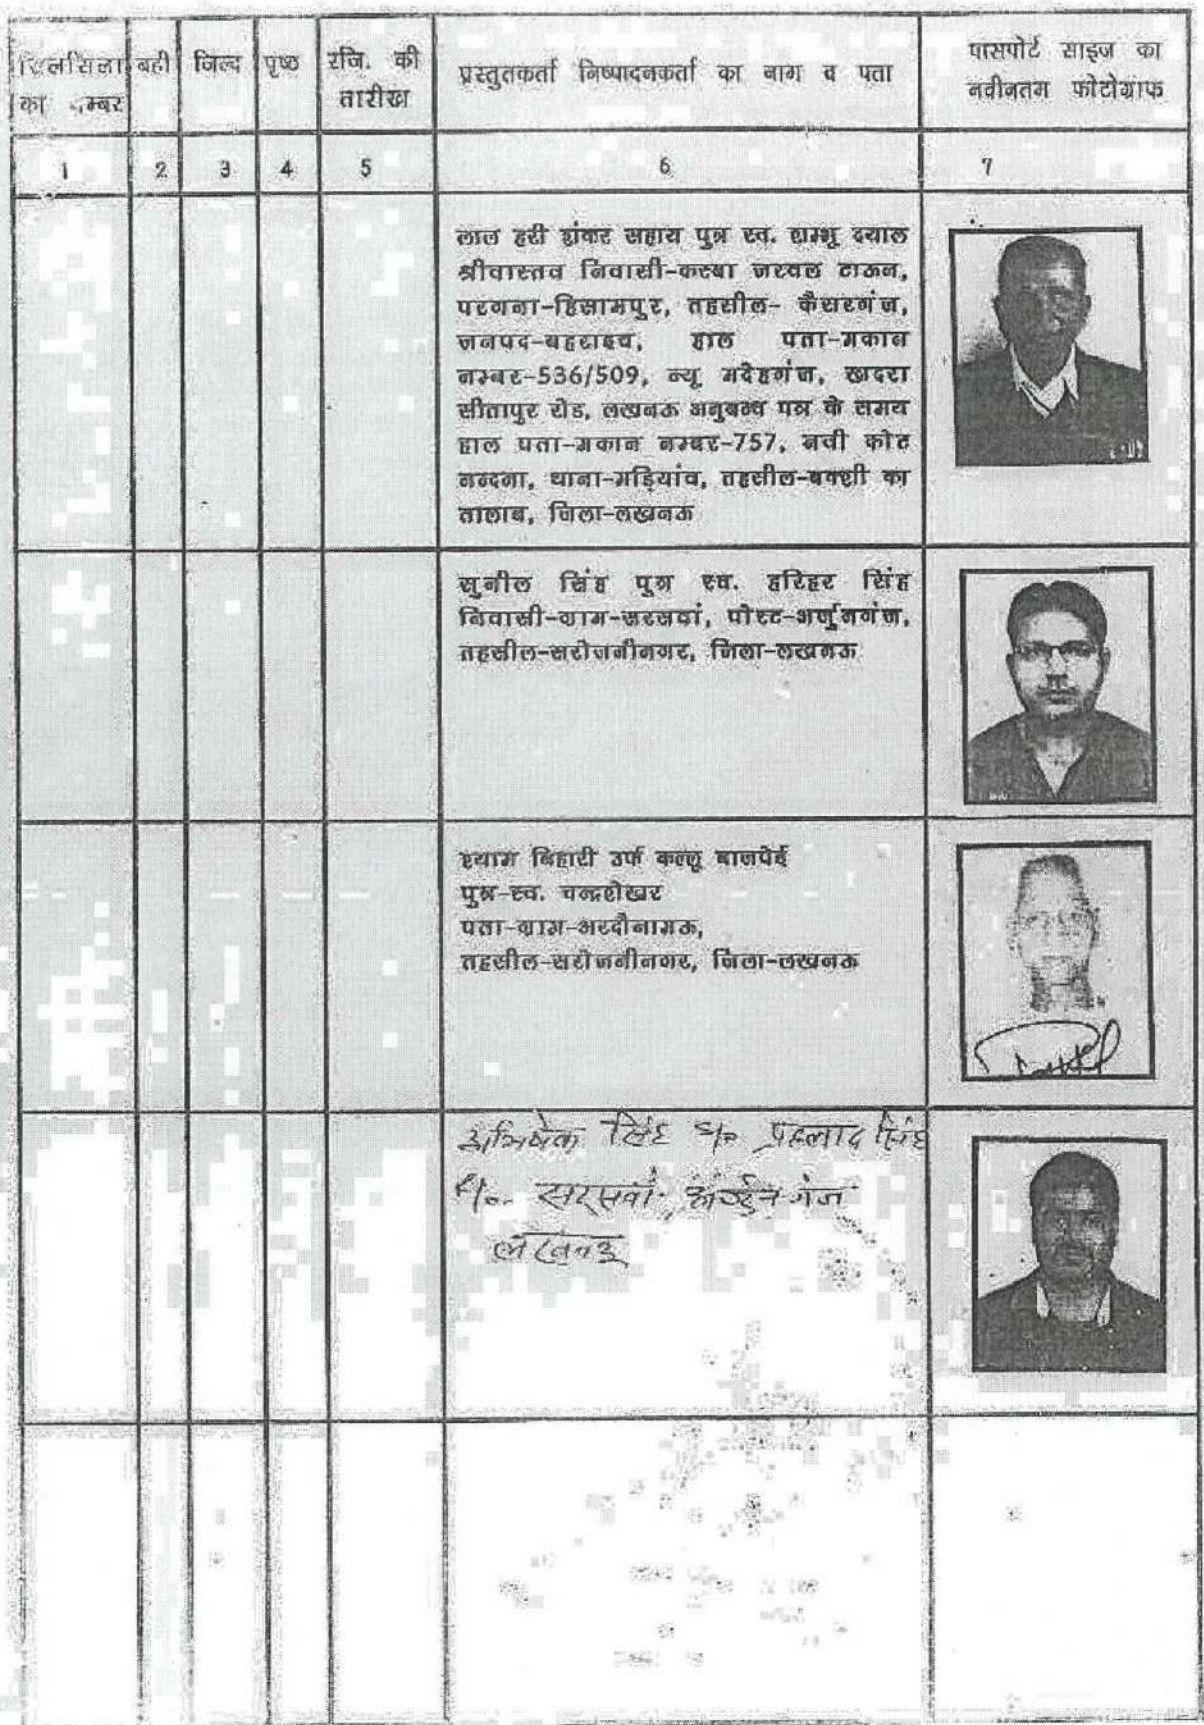 सिलसिला का नम्बर
बही
जिल्द
पृष्ठ
रजि. की तारीख
प्रस्तुतकर्ता निष्पादनकर्ता का नाम व पता
पासपोर्ट साइज का नवीनतम फोटोग्राफ
1 2 3 4 5 6 7
लाल हरी शंकर सहाय पुत्र स्व. शम्भू दयाल
श्रीवास्तव निवासी-कस्बा जरवल टाऊन,
परगना-हिसामपुर, तहसील- कैसरगंज,
जनपद-बहराइच, हाल पता-मकान
नम्बर-536/509, न्यू मदेहगंज, खादरा
सीतापुर रोड, लखनऊ अनुबन्ध पत्र के समय
हाल पता-मकान नम्बर-757, नवी कोट
नन्दना, थाना-मड़ियांव, तहसील-बक्शी का
तालाब, जिला-लखनऊ
सुनील सिंह पुत्र स्व. हरिहर सिंह
निवासी-ग्राम-सरसवां, पोस्ट-अर्जुनगंज,
तहसील-सरोजनीनगर, जिला-लखनऊ
श्याम बिहारी उर्फ कल्लू बाजपेई
पुत्र-स्व. चन्द्रशेखर
पता-ग्राम-भरदौनामऊ,
तहसील-सरोजनीनगर, जिला-लखनऊ
अभिषेक सिंह S/o प्रहलाद सिंह
सरसवां अर्जुनगंज
लखनऊ